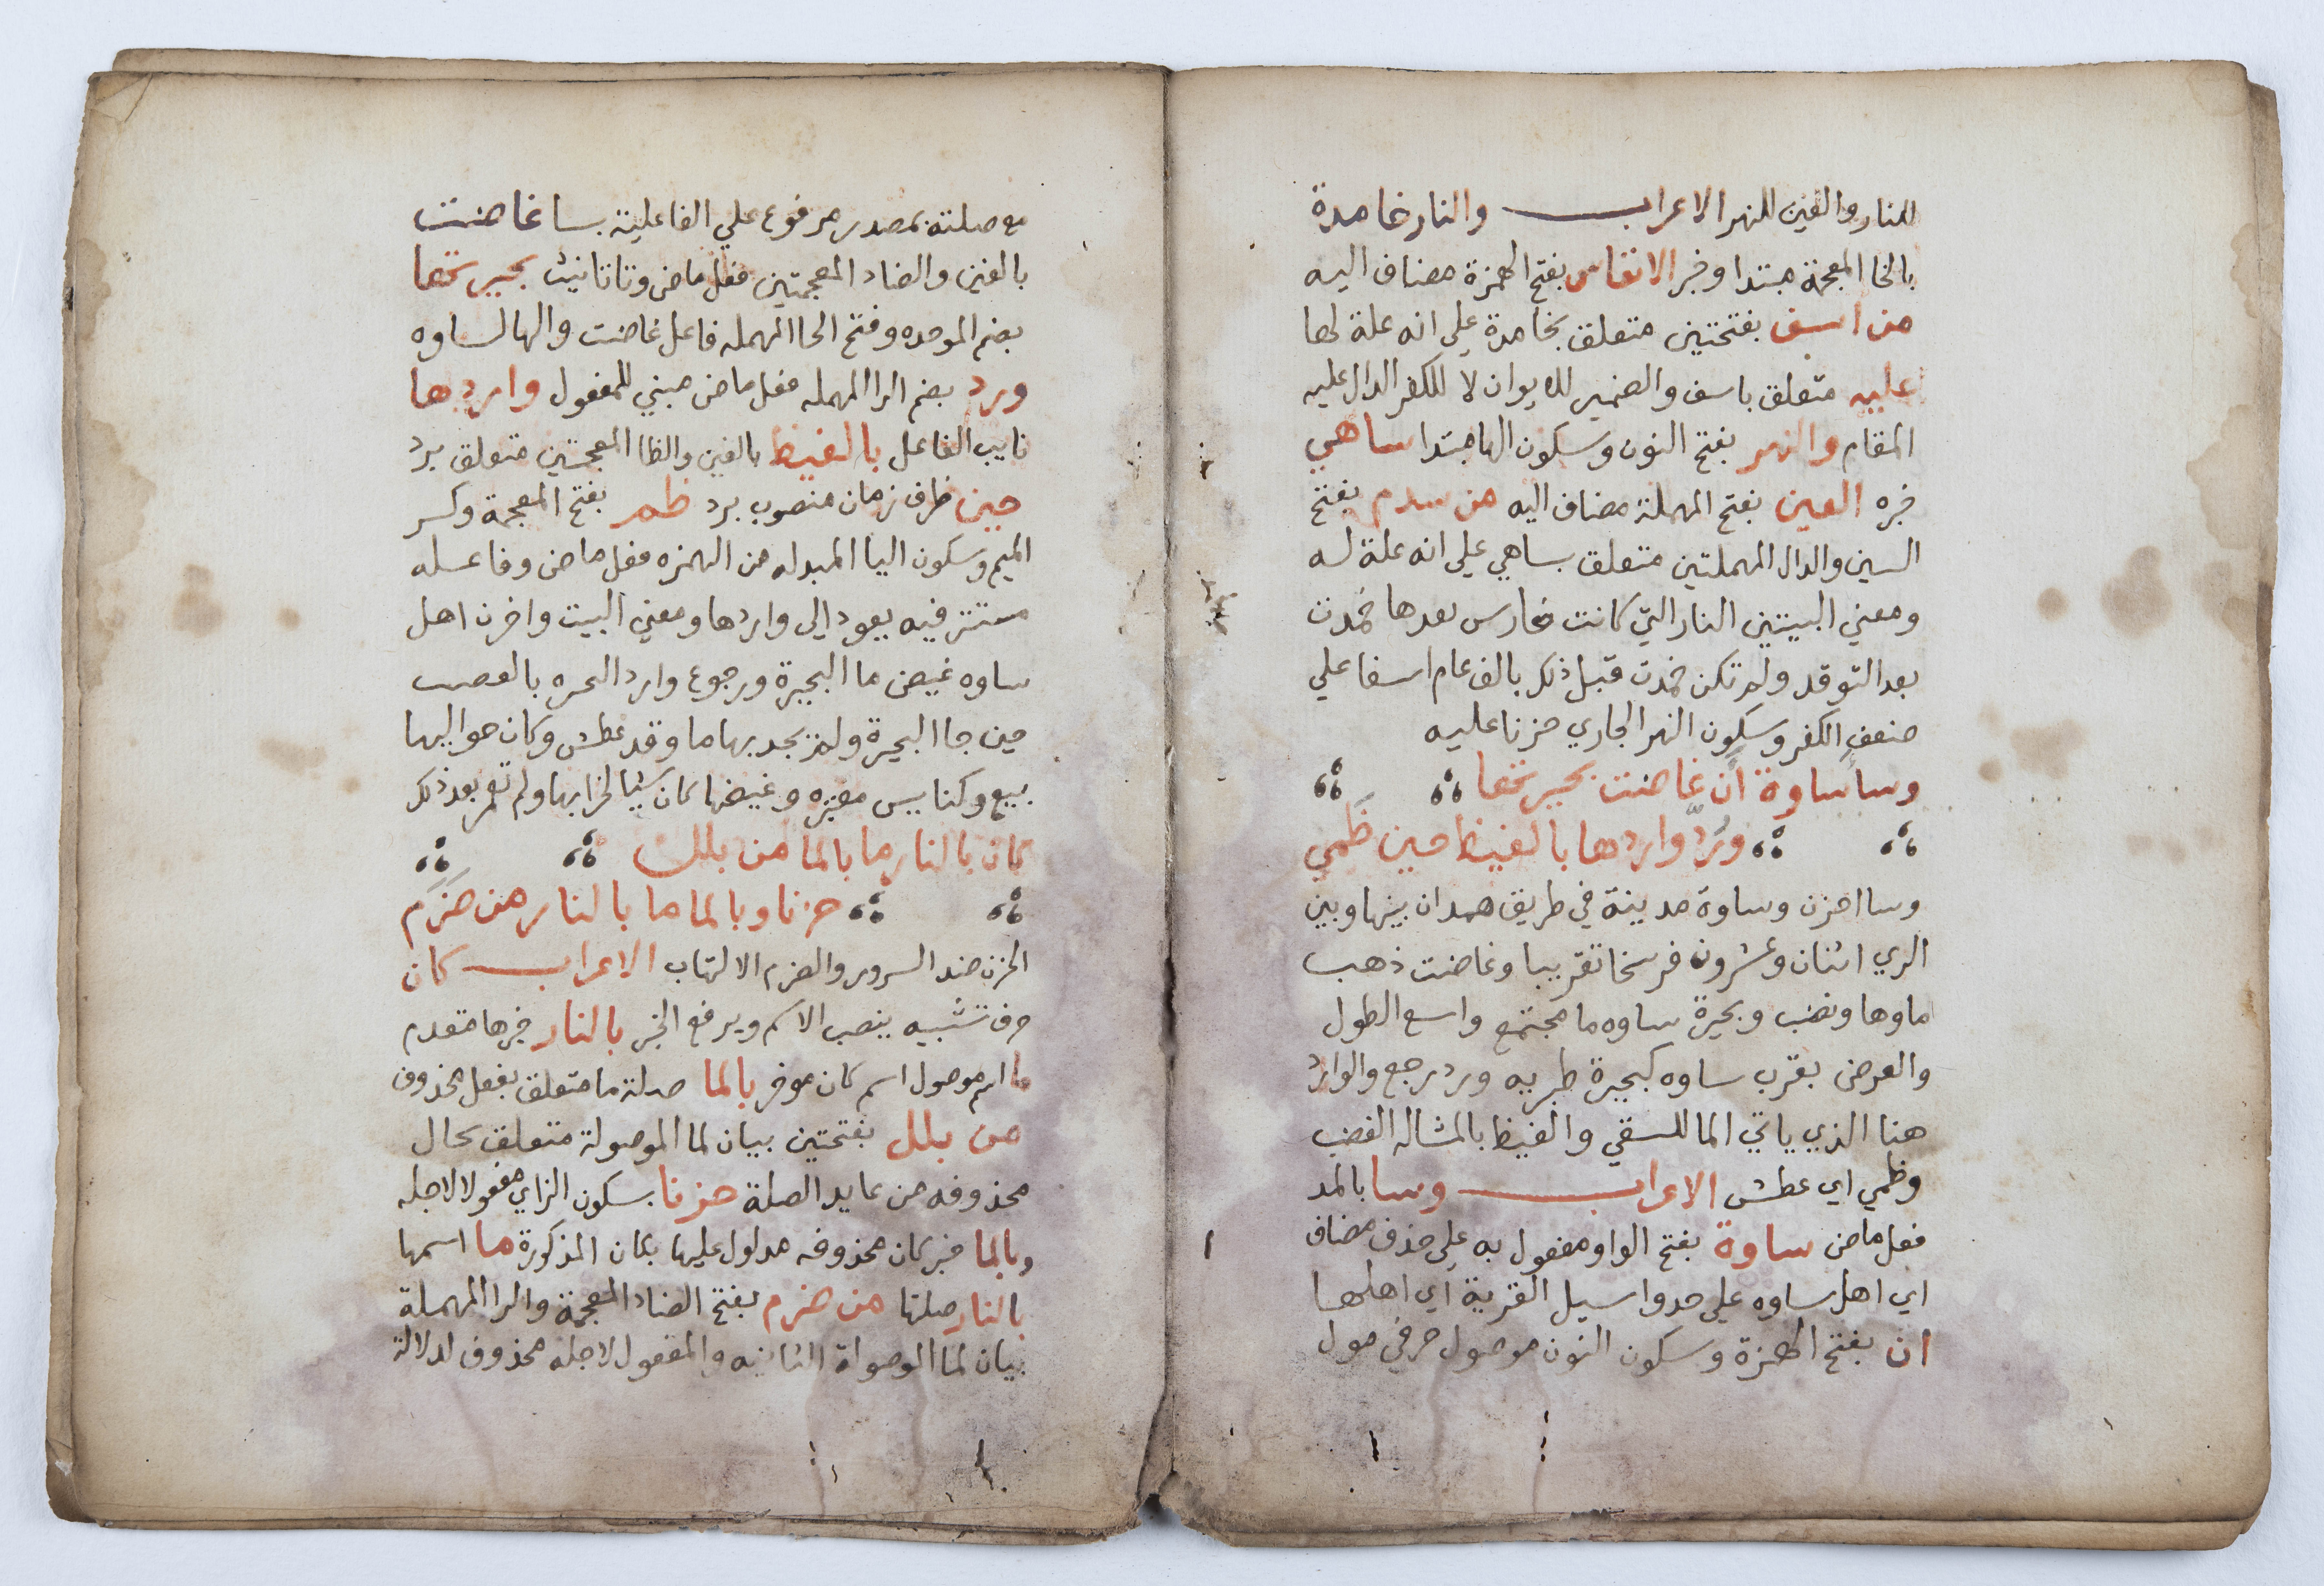 للنار والعين للنهر الاعراب والنار خامدة
بالخا المعجمة مبتدا وخبر الانفاس بفتح الهمزة مضاف اليه
من اسف بفتحتين متعلق بخامدة علي انه علة لها
عليه متعلق باسف والضمير للايوان لا للكفر الدال عليه
المقام والنهر بفتح النون وسكون الها مبتدا ساهي
خبره العين بفتح المهملة مضاف اليه من سدم بفتح
السين والدال المهملتين متعلق بساهي علي انه علة له
ومعني البيتين النار التي كانت فارس بعدها خمدت
بعد التوقد ولم تكن خمدت قبل ذلك بالف عام اسفا علي
ضعف الكفر وسكون النهر الجاري حزنا عليه
وساساوة ان غاضت بحيرتها
ورد واردها بالغيظ حين ظمي
وسا احزن وساوة مدينة في طريق همدان بينها وبين
الري اثنان وعشرون فرسخا تقريبا وغاضت ذهب
ماوها ونضب وبحيرة ساوه ما مجتمع واسع الطول
والعرض بقرب ساوه كبحيرة طبريه ورد رجع والوارد
هنا الذي ياتي الما للسقي والغيظ بالمشاله الغضب
وظمي اي عطش الاعراب وسا بالمد
فعل ماض ساوة بفتح الواو مفعول به علي حذف مضاف
اي اهل ساوه علي حد واسيل القرية اي اهلها
ان بفتح الهمزة وسكون النون موصول حرفي مول
مع صلته بمصدر مرفوع علي الفاعلية بسا غاضت
بالغين والضاد المعجمتين فعل ماض وتا تانيث بحيرتها
بضم الموحده وفتح الحا المهمله فاعل غاضت والها لساوه
ورد بضم الرا المهمله فعل ماض مبني للمفعول واردها
نايب الفاعل بالغيظ بالغين والظا المعجمتين متعلق برد
حين ظرف زمان منصوب برد ظمي بفتح المعجمة وكسر
الميم وسكون اليا المبدله من الهمزه فعل ماض وفاعله
مستتر فيه يعود الي واردها ومعني البيت واحزن اهل
ساوه غيض ما البحيرة ورجوع وارد البحره بالغضب
حين جا البحيرة ولم يجد بها ما وقد عطش وكان حواليها
بيع وكنايس معتبره وغيضها كان سببا لخرابها ولم تعمر بعد ذلك
كان بالنار ما بالما من بلل
حزنا وبالما ما بالنار من ضرم
الحزن ضد السرور والضرم الالتهاب الاعراب كان
حرف تشبيه ينصب الاسم ويرفع الخبر بالنار خبرها مقدم
ما اسم موصول اسم كان موخر بالما صلة ما متعلق بفعل محذوف
من بلل بفتحتين بيان لما الموصولة متعلق بحال
محذوفه من عايد الصلة حزنا بسكون الزاي مفعولا لاجله
وبالما خبر كان محذوفه مدلول عليها بكان المذكورة ما اسمها
بالنار صلتها من ضرم بفتح الضاد المعجمة والرا المهملة
بيان لما الموصولة الثانيه والمفعول لاجله محذوف لدلالة